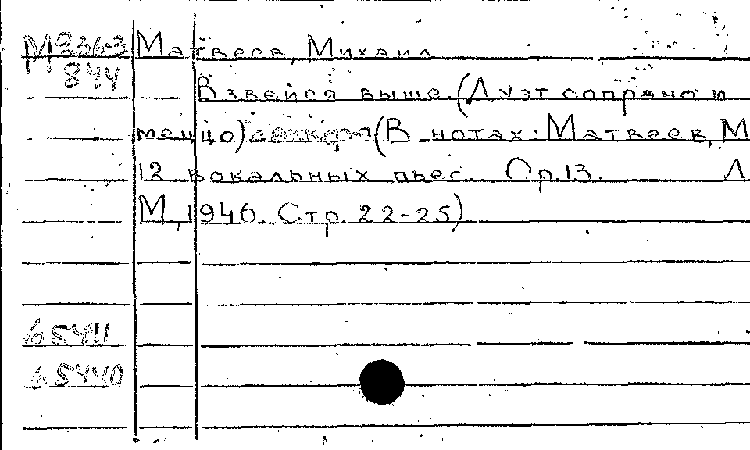 М 236-3 Матвеев, Михаил
844
Взвейся выше. (Дуэт сопрано и
меццо) (В нотах: Матвеев, М
12 вокальных пьес. Ор. 13. Л
М, 1946. Стр. 22-25)
65411
65440